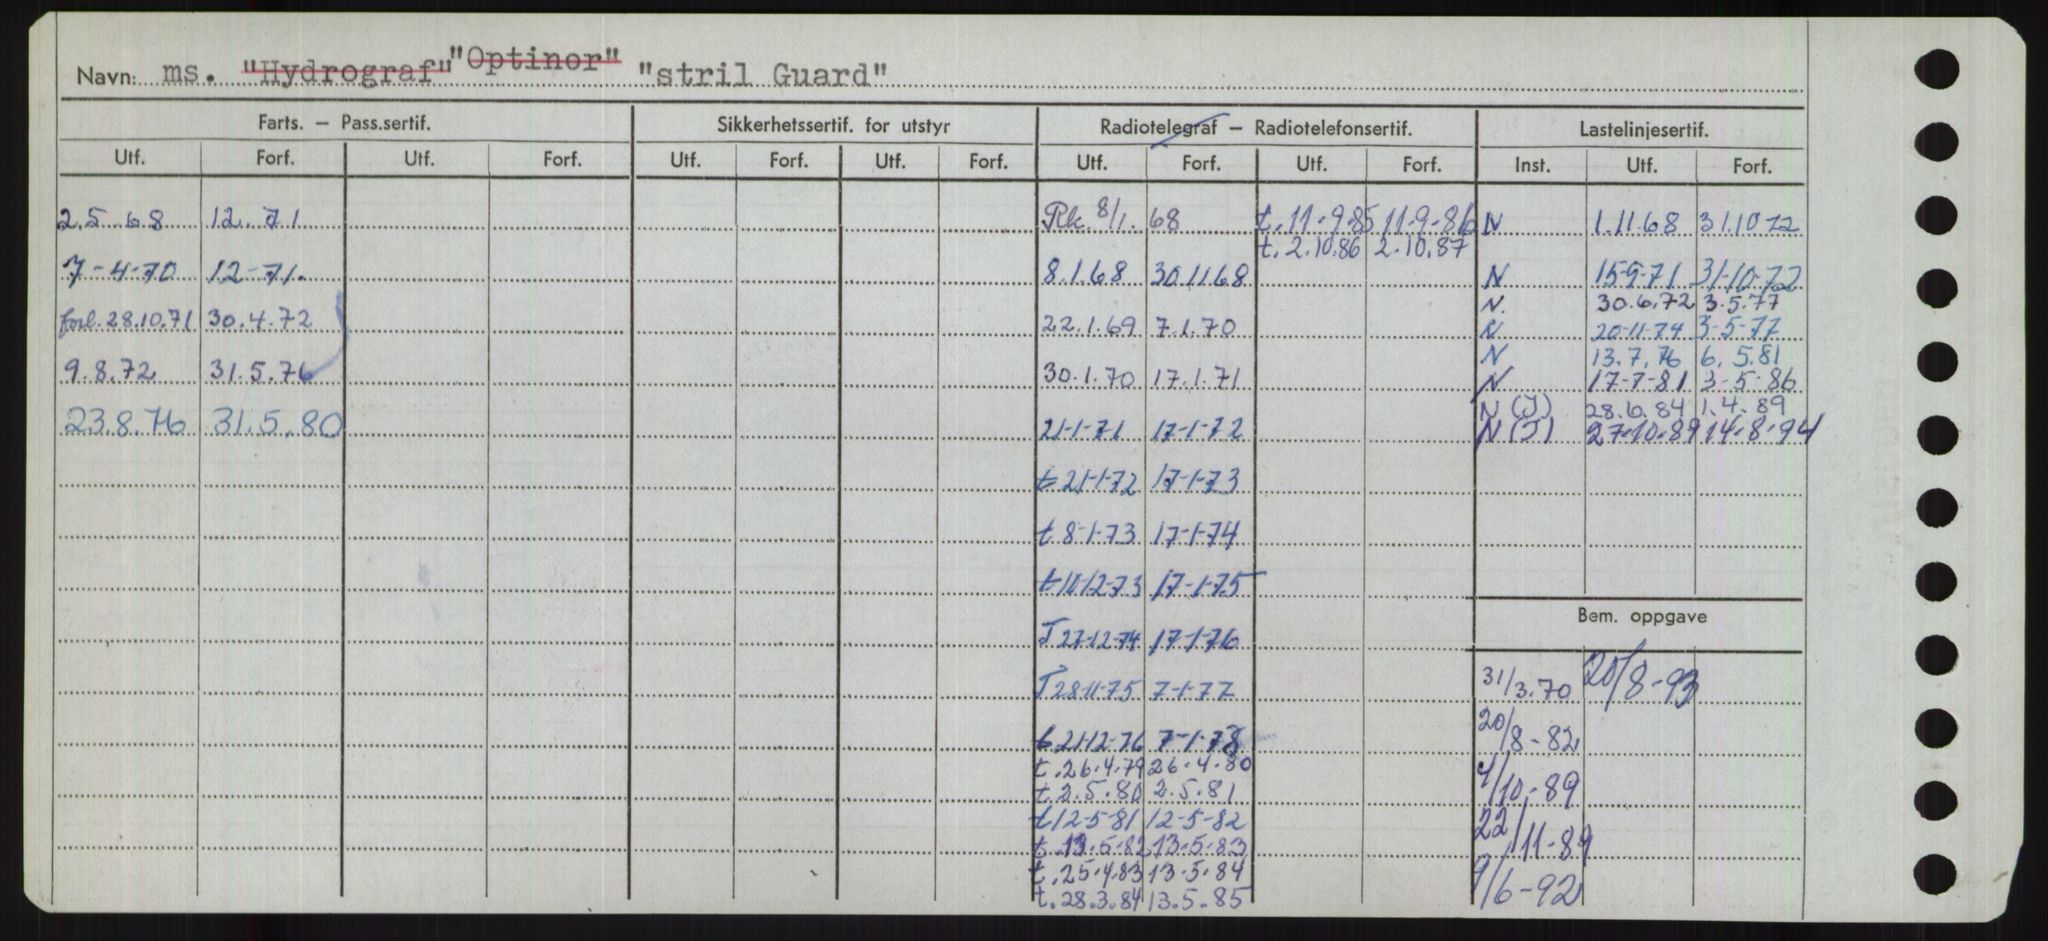 Navn: ms. "Hydrograf" "Optinor" "stril Guard"
Farts. — Pass.sertif. Sikkerhetssertif. for utstyr Radiotelegraf — Radiotelefonsertif. Lastelinjesertif.
Utf. Forf. Utf. Forf. Utf. Forf. Utf. Forf. Utf. Forf. Utf. Forf. Inst. Utf. Forf.
2.5.68 12.71 Rk. 8/1. 68 t. 11-9-85 11-9-86 N 1.11.68 31.10 72
t. 2.10.86 2.10.87
7-4-70 12-71. 8.1.68 30.11.68 N 15-9-71 31-10-72
N. 30.6.72 3.5.77
forl. 28.10.71 30.4.72 22.1.69 7.1.70 N 20-11-74 3-5-77
N 13.7.76 6.5.81
9.8.72 31.5.76 30.1.70 17.1.71 N 17-7-81 3-5-86
N (J) 28.6.84 1.4.89
23.8.76 31.5.80 21-1-71 17-1-72 N (J) 27-10-89 14-8-94
t 21-1-72 17-1-73
t 8-1-73 17-1-74
t 10-12-73 17-1-75
Bem. oppgave
T 27-12-74 17-1-76
31/3.70 20/8-93
T 28-11-75 7-1-77
20/8-82
t 21-12-76 7-1-78
t. 26.4.79 26.4.80
4/10-89
t. 2.5.80 2.5.81
t 12-5-81 12-5-82
22/11-89
t. 13.5-82 13-5-83
t. 25.4.83 13-5-84
9/6-92
t. 28.3.84 13.5.85